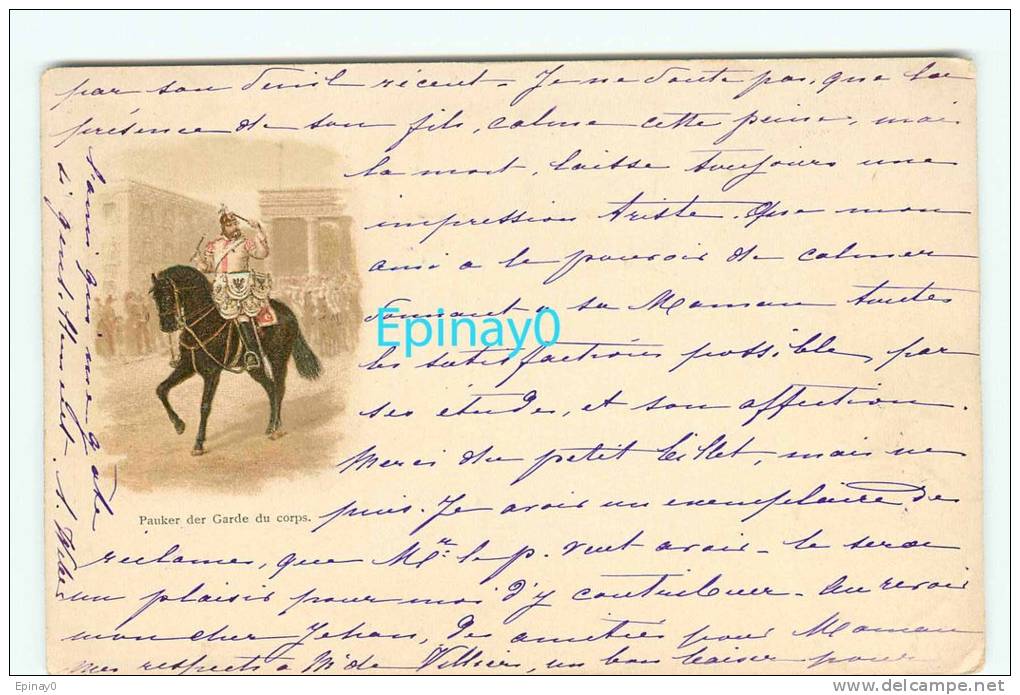 par son deuil récent - Je ne doute pas, que la
présence de son fils, calme cette peine, mais
la mort, laisse toujours une
impression triste. Que mon
ami a le pouvoir de calmer
donnant à sa Maman toutes
les satisfactions possible, par
ses études, et son affection.
Merci du petit billet, mais ne
puis. Je avais un exemplaire des
réclames, que Mr. le p. veut avoir - le sera
un plaisir pour moi d'y contribuer - Au revoir
mon cher Jehan, des amitiés pour Maman
mes respects à M. de Villiers, un bon baiser pour
l'ami qui me gâte
Pauker der Garde du corps.
Epinay0
Epinay0
delcampe.net